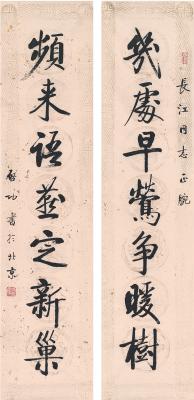 長江同志正腕
幾處早鶯争暖樹
頻来語燕定新巢
啓功書於北京